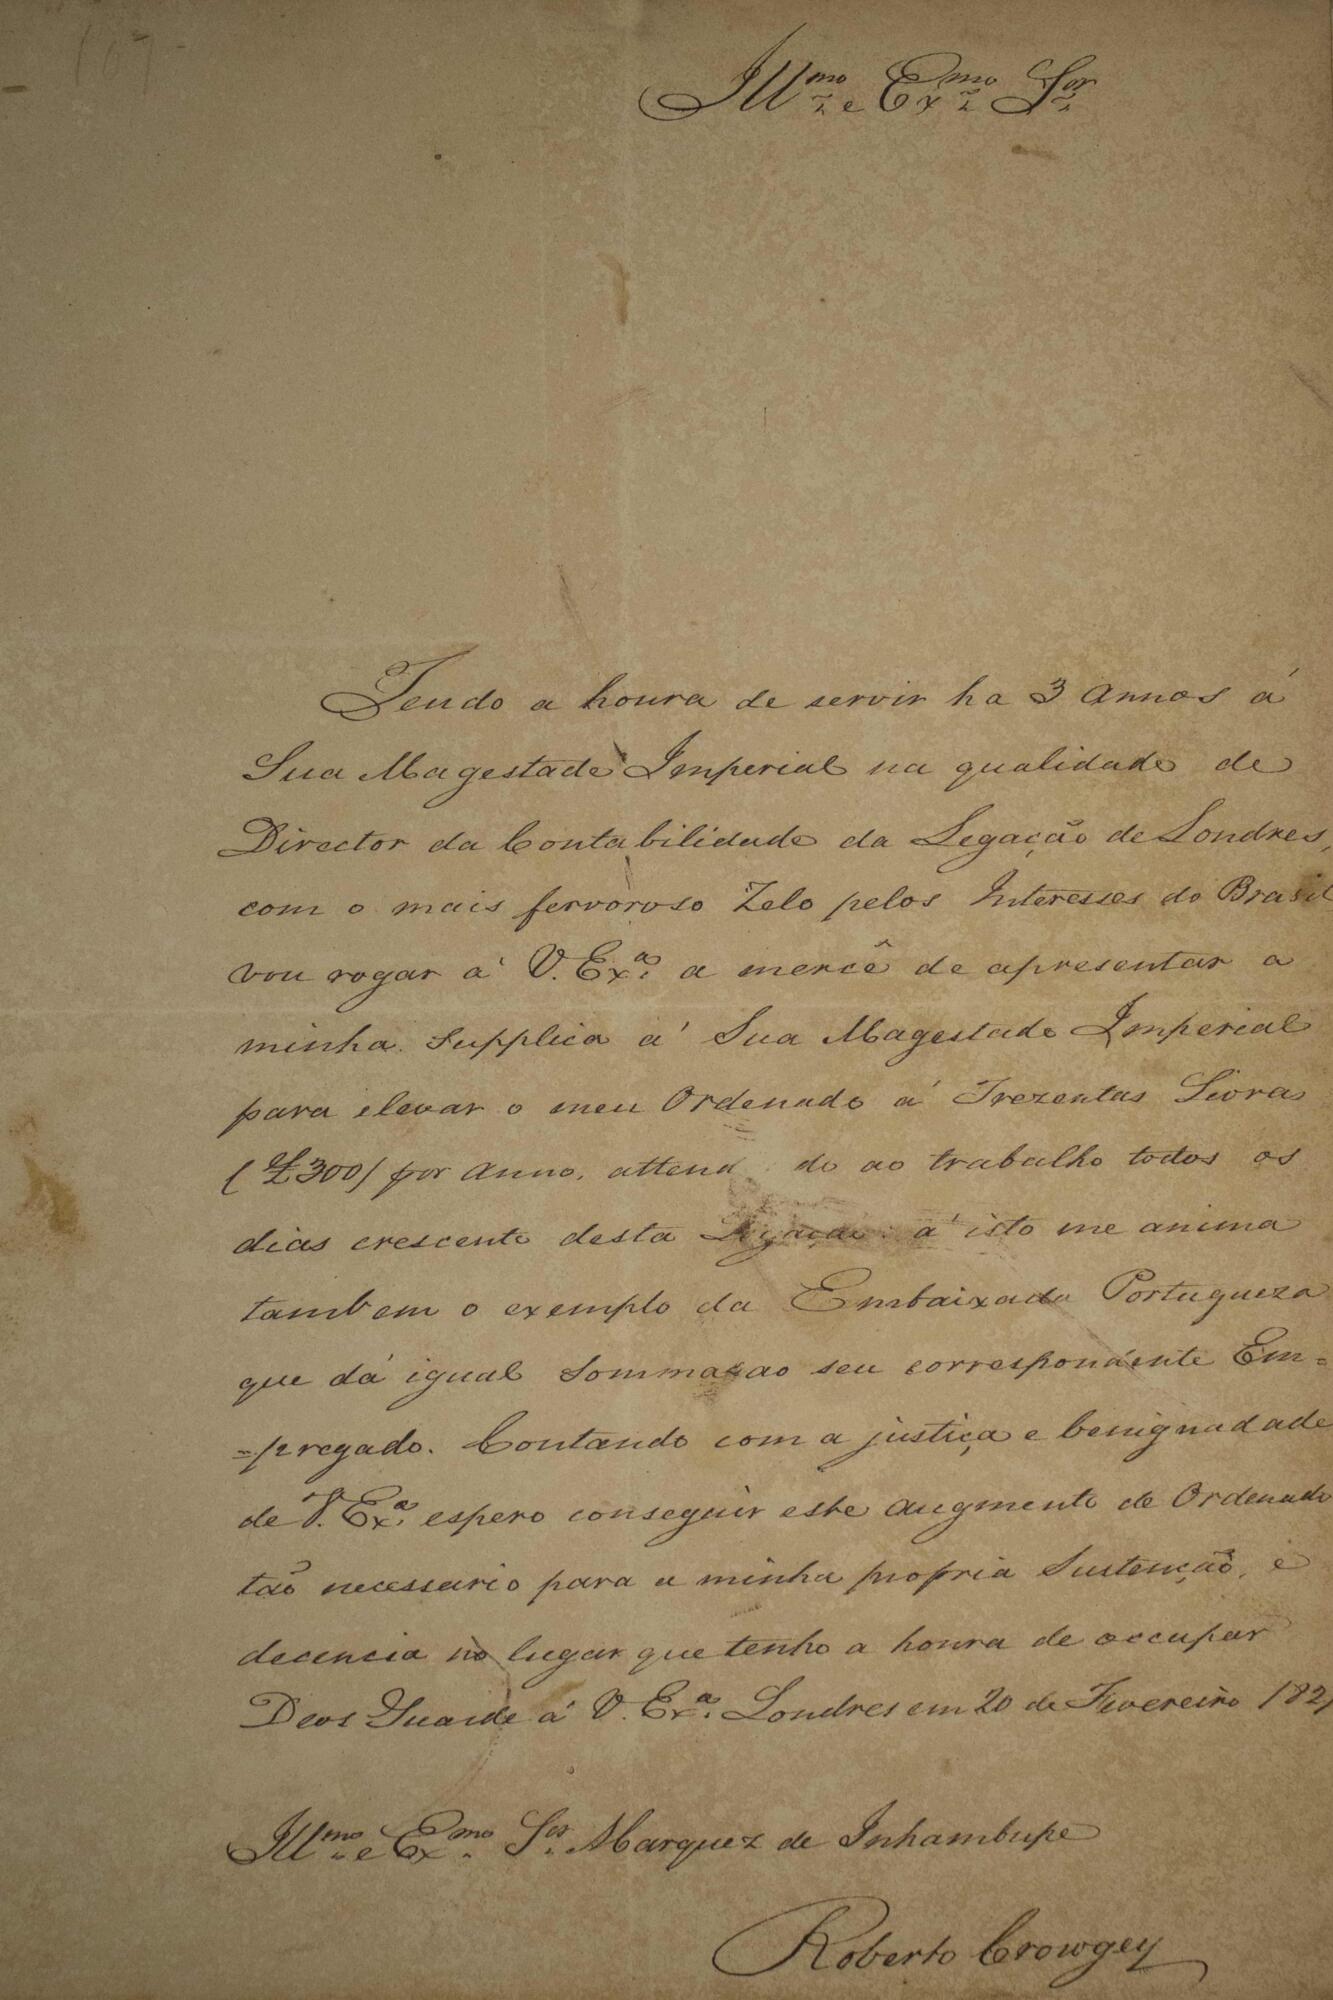 Ill.mo e Ex.mo S.or
Tendo a honra de servir ha 3 annos á
Sua Magestade Imperial na qualidade de
Director da Contabilidade da Legação de Londres,
com o mais fervoroso Zelo pelos Interesses do Brasil
vou rogar á V. Ex.a a mercê de apresentar a
minha Supplica á Sua Magestade Imperial
para elevar o meu Ordenado á Trezentas Livras
(£300) por anno, attend do ao trabalho todos os
dias crescente desta Legação: á isto me anima
tambem o exemplo da Embaixada Portugueza
que dá igual Somma ao seu correspondente Em=
=pregado. Contando com a justiça e benignadade
de V. Ex.a espero conseguir este augmento de Ordenado
tão necessario para a minha propria Sustenção, e
decencia no lugar que tenho a honra de occupar
Deos Guarde á V. Ex.a Londres em 20 de Fevereiro 182
Ill.mo e Ex.mo S.or Marquez de Inhambupe
Roberto Crowgey